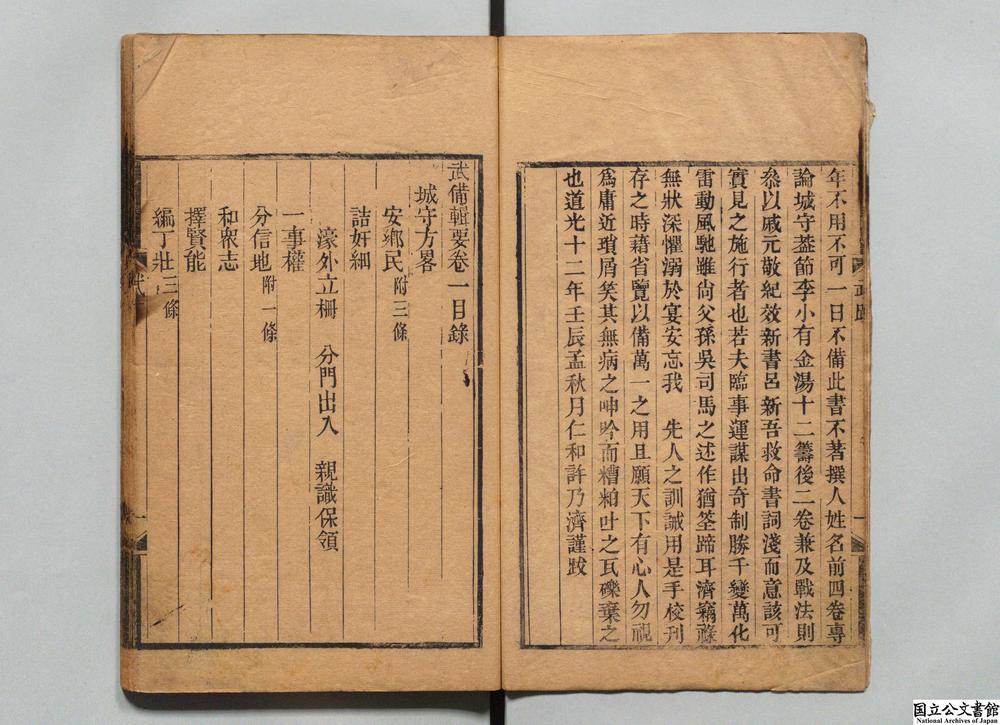 年不用不可一日不備此書不著撰人姓名前四卷專
論城守葢節李小有金湯十二籌後二卷兼及戰法則
叅以戚元敬紀效新書呂新吾救命書詞淺而意該可
實見之施行者也若夫臨事運謀出奇制勝千變萬化
雷動風馳雖尙父孫吳司馬之述作猶筌蹄耳濟竊祿
無狀深懼溺於宴安忘我　先人之訓誡用是手校刋
存之時藉省覽以備萬一之用且願天下有心人勿視
爲庸近瑣屑笑其無病之呻吟而糟粕吐之瓦礫棄之
也道光十二年壬辰孟秋月仁和許乃濟謹跋
武備輯要卷一目錄
城守方畧
安鄉民附三條
詰奸細
濠外立柵　分門出入　親識保領
一事權
分信地附一條
和衆志
擇賢能
編丁壯三條
国立公文書館
National Archives of Japan